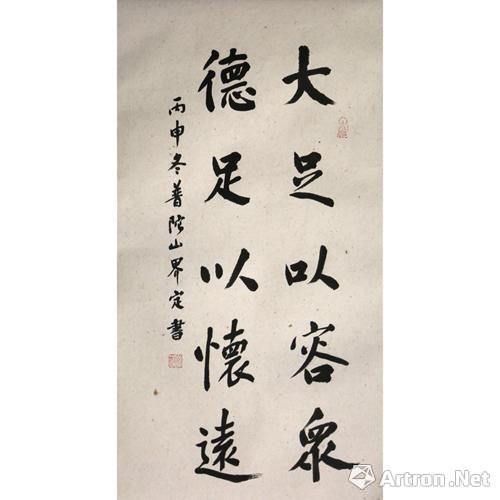 大足以容眾
德足以懷遠
丙申冬普陀山界定書
Artron.Net